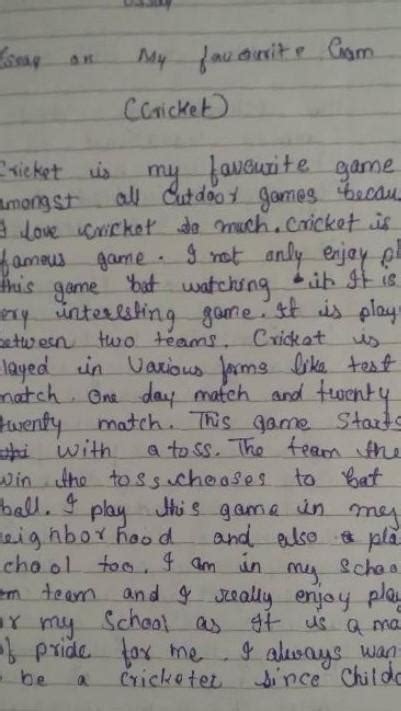 Essay
Essay on My favourite Gam
(Cricket)
Cricket is my favourite game
amongst all Outdoor games becau
I love cricket so much. Cricket is
famous game. I not only enjoy pl
this game bat watching it. It is
ery interesting game. It is play
between two teams. Cricket is
layed in Various forms like test
match. One day match and twenty
twenty match. This game Starts
with a toss. The team the
win the toss chooses to bat
ball. I play this game in my
eighborhood and also pla
chool too. I am in my Schoo
m team and I really enjoy play
r my School as It is a ma
of pride for me. I always wan
be a cricketer since Childo